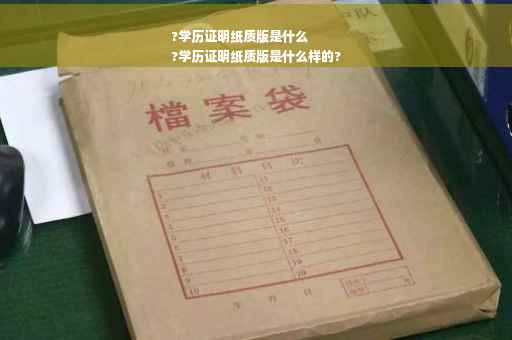 ?学历证明纸质版是什么
?学历证明纸质版是什么样的?
檔案袋
材料目次
1 11
2 12
3 13
4 14
5 15
6 16
7 17
8 18
9 19
10 20
年 月 日